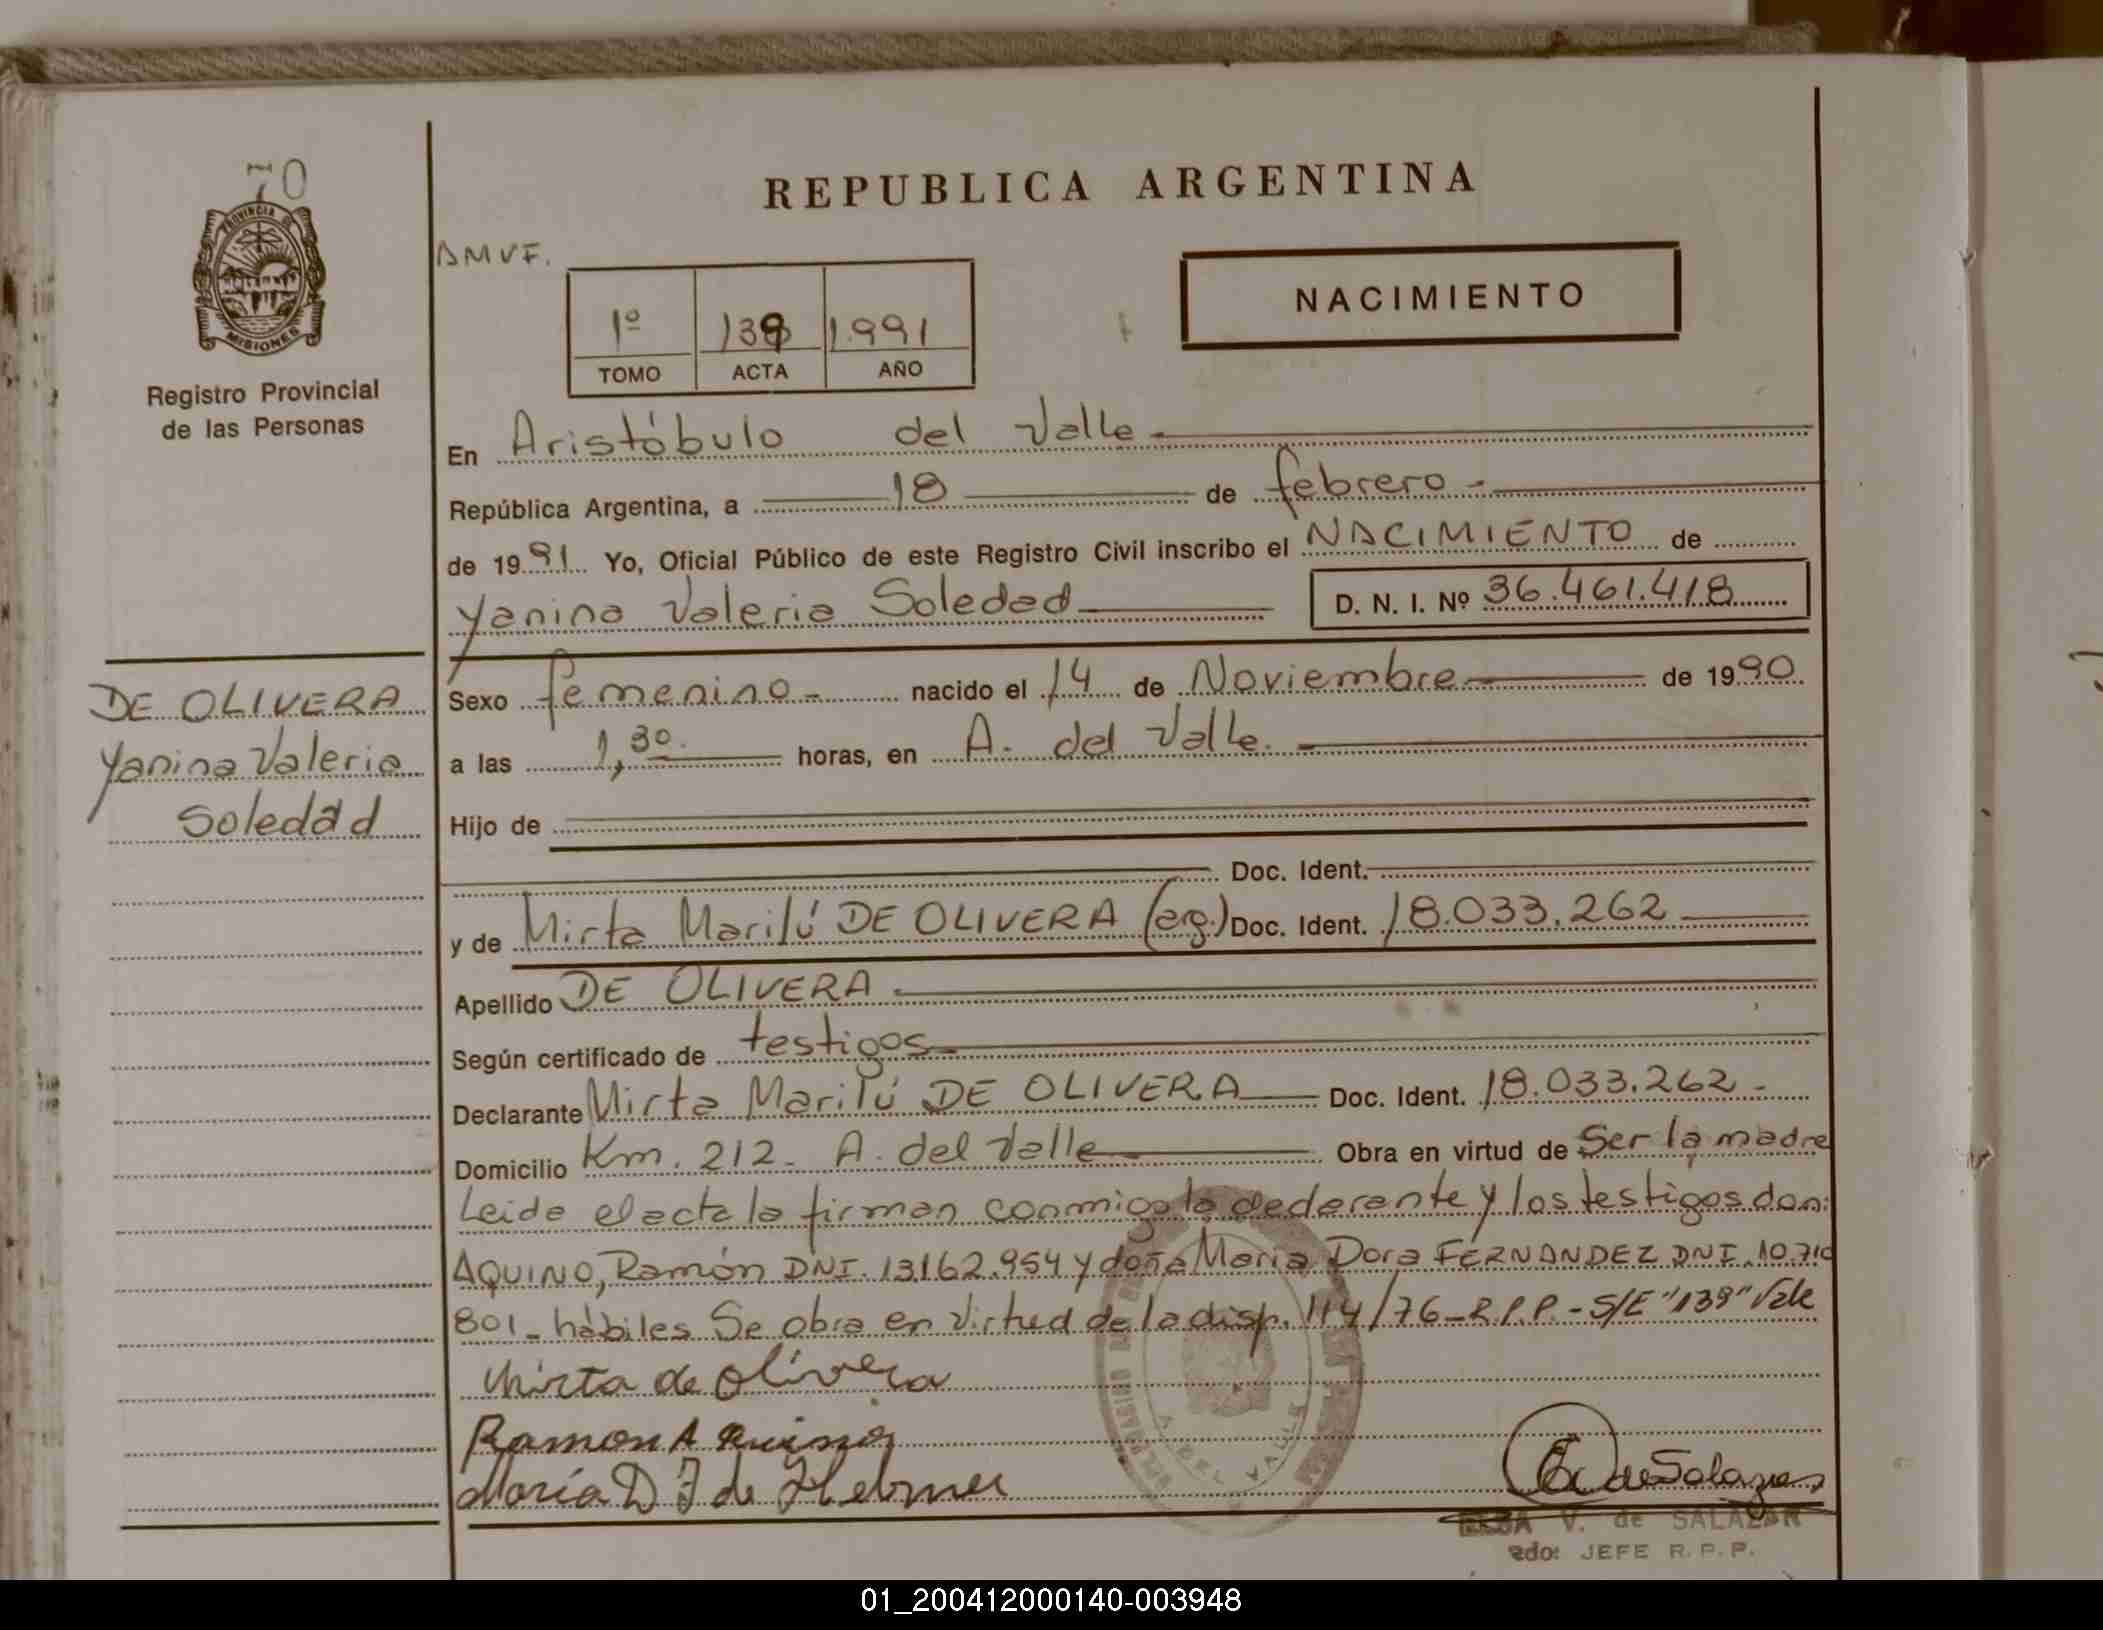 70
PROVINCIA DE
MISIONES
Registro Provincial
de las Personas
DE OLIVERA
Yanina Valeria
Soledad
REPUBLICA ARGENTINA
AMVF.
1º 139 1.991
TOMO ACTA AÑO
NACIMIENTO
En Aristóbulo del Valle
República Argentina, a 18 de febrero
de 1991 Yo, Oficial Público de este Registro Civil inscribo el NACIMIENTO de
Yanina Valeria Soledad D. N. I. Nº 36.461.418
Sexo femenino nacido el 14 de Noviembre de 1990
a las 1,30 horas, en A. del Valle
Hijo de
Doc. Ident.
y de Mirta Marilú DE OLIVERA (arg.) Doc. Ident. 18.033.262
Apellido DE OLIVERA
Según certificado de testigos
Declarante Mirta Marilú DE OLIVERA Doc. Ident. 18.033.262
Domicilio Km. 212 - A. del Valle Obra en virtud de Ser la madre
Leida el acta la firman conmigo la declarante y los testigos don:
AQUINO, Ramón DNI. 13.162.954 y doña Maria Dora FERNANDEZ DNI. 10.710
801 - hábiles Se obra en virtud de la disp. 114/76 - R.P.P. - S/E "139" Vale
Mirta de Olivera
Ramon Aquino
María D F de
de Salazar
ELBA V. de SALAZAR
JEFE R. P. P.
A. DEL VALLE
01_200412000140-003948